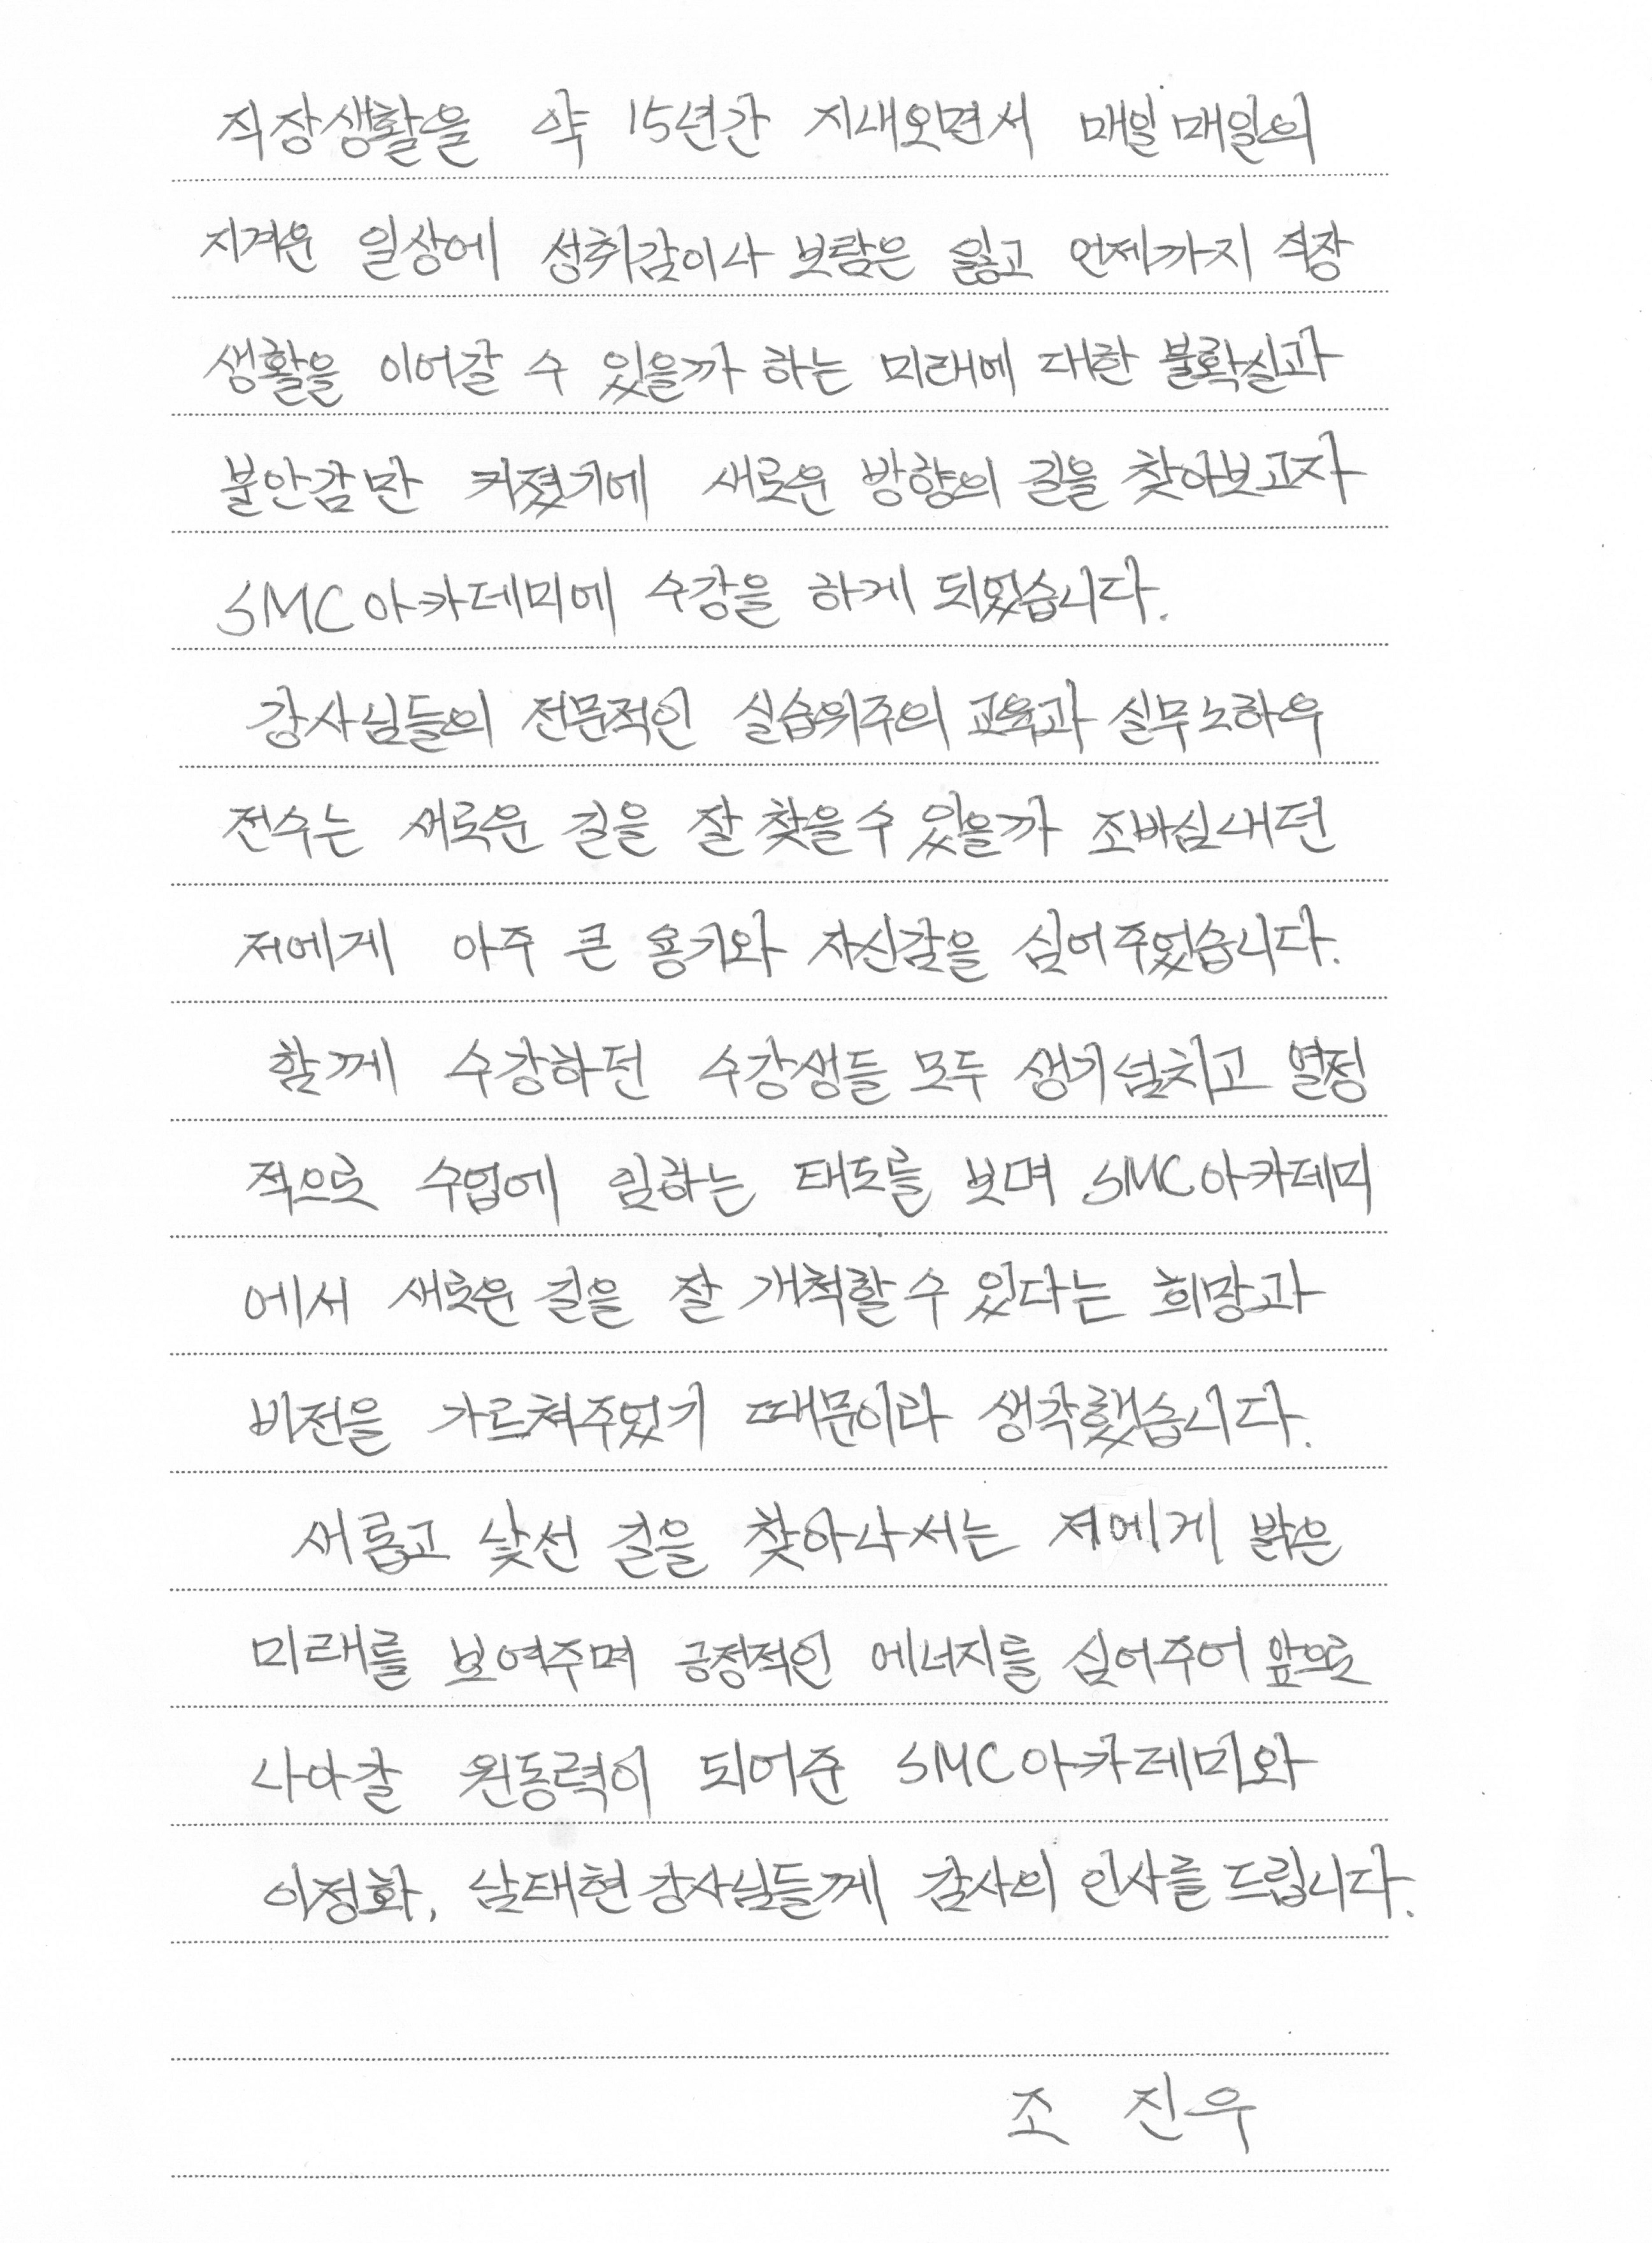 직장생활을 약 15년간 지내오면서 매일매일의
지겨운 일상에 성취감이나 보람은 잃고 언제까지 직장
생활을 이어갈 수 있을까 하는 미래에 대한 불확실과
불안감만 커졌기에 새로운 방향의 길을 찾아보고자
SMC아카데미에 수강을 하게 되었습니다.
강사님들의 전문적인 실습위주의 교육과 실무노하우
전수는 새로운 길을 잘 찾을수 있을까 조바심내던
저에게 아주 큰 용기와 자신감을 심어주었습니다.
함께 수강하던 수강생들 모두 생기넘치고 열정
적으로 수업에 임하는 태도를 보며 SMC아카데미
에서 새로운 길을 잘 개척할수 있다는 희망과
비전을 가르쳐주었기 때문이라 생각했습니다.
새롭고 낯선 길을 찾아나서는 저에게 밝은
미래를 보여주며 긍정적인 에너지를 심어주어 앞으로
나아갈 원동력이 되어준 SMC아카데미와
이정화, 남태현 강사님들께 감사의 인사를 드립니다.
조 진우